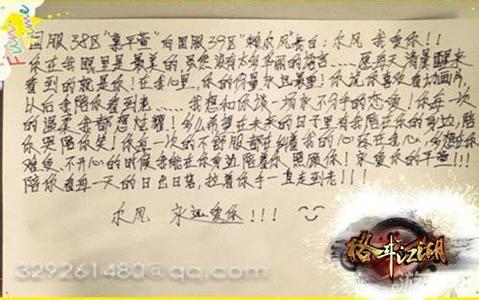 国服38区"慕平萱"向国服39区"赖尔风"表白:尔风 我爱你!!
你在我眼里是最美的 虽然没有太多华丽的语言……愿每天清晨醒来
看到的就是你!在我心里,你的份量永远最重!你说你喜欢看动画片,
以后我陪你看到老……我想和你谈一场永不分手的恋爱!你每一次
的温柔我都想炫耀!多么希望在未来的日子里有我陪在你的身边,陪
你哭陪你笑!你每一次的不舒服都牵着我的心疼在我心,多想在你
难受、不开心的时候我能在你身边陪着你照顾你!永爱你的平萱!!!
陪你看每一天的日出日落,拉着你手一直走到老!!!
尔风 永远爱你!!!
格斗江湖
329261480@qq.com
Fun time